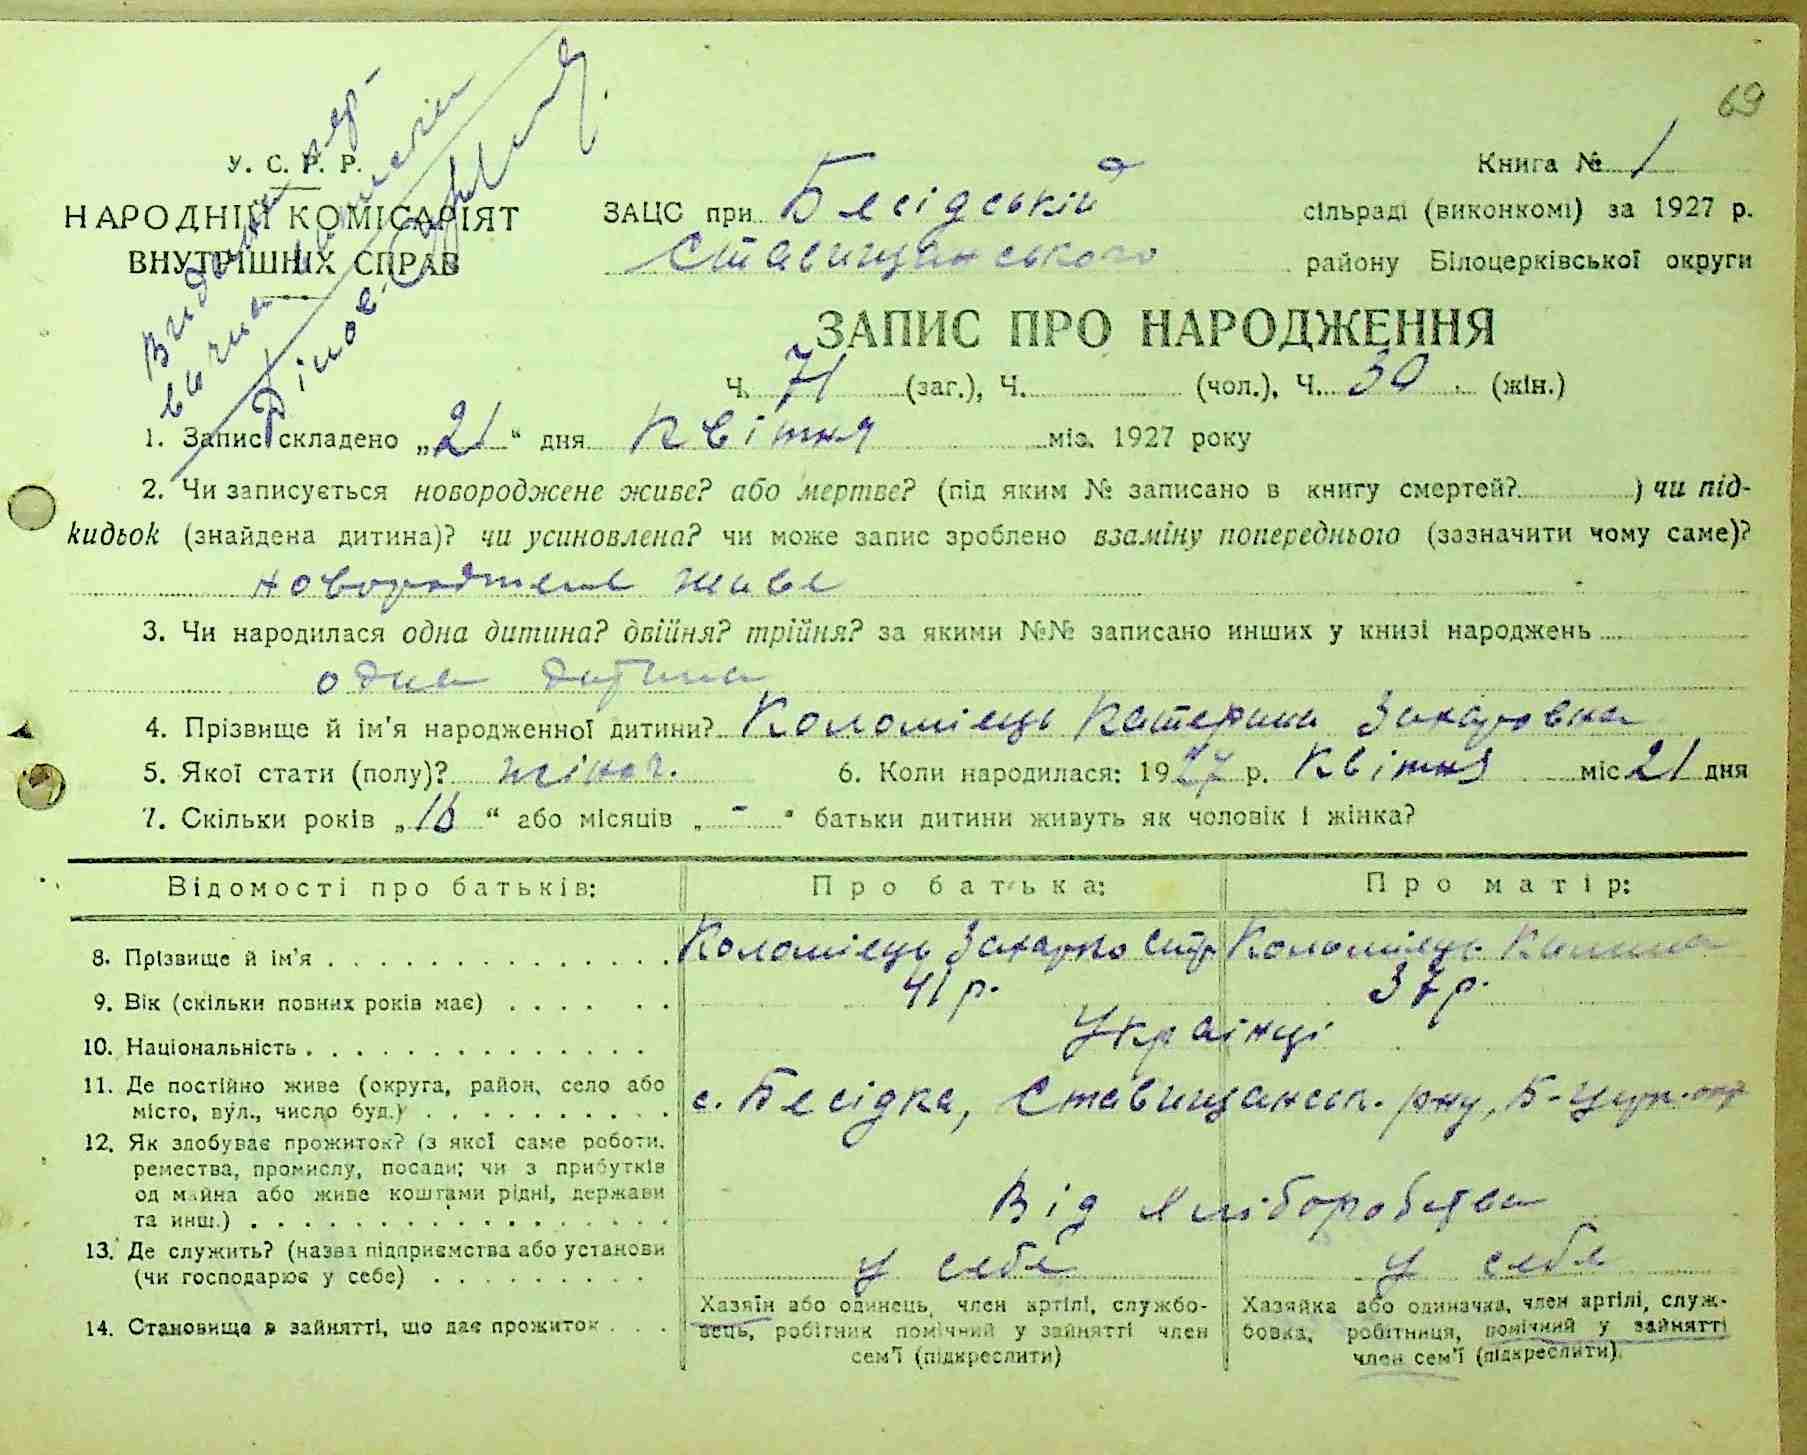 69
У. С. Р. Р.
НАРОДНІЙ КОМІСАРІЯТ
ВНУТРІШНІХ СПРАВ
Книга № 1
ЗАЦС при Бесідській сільраді (виконкомі) за 1927 р.
Ставищанського району Білоцерківської округи
ЗАПИС ПРО НАРОДЖЕННЯ
Ч. 71 (заг.), Ч. (чол.), Ч. 30 (жін.)
1. Запис складено „21“ дня Квітня міс. 1927 року
2. Чи записується новороджене живе? або мертве? (під яким № записано в книгу смертей? ) чи під-
кидьок (знайдена дитина)? чи усиновлена? чи може запис зроблено взаміну попереднього (зазначити чому саме)?
новороджене живе
3. Чи народилася одна дитина? двійня? трійня? за якими №№ записано инших у книзі народжень
одна дитина
4. Прізвище й ім'я народженної дитини? Коломієць Катерина Захаровна
5. Якої стати (полу)? жіноч. 6. Коли народилася: 1927 р. Квітня міс 21 дня
7. Скільки років „16“ або місяців „-“ батьки дитини живуть як чоловік і жінка?
Відомості про батьків: Про батька: Про матір:
8. Прізвище й ім'я Коломієць Захарко Коломієць
9. Вік (скільки повних років має) 41 р. 37 р.
10. Національність Українці
11. Де постійно живе (округа, район, село або
місто, вул., число буд.) с. Бесідка, Ставищанськ. р-ну, Б-Церк. окр
12. Як здобуває прожиток? (з якої саме роботи,
ремества, промислу, посади; чи з прибутків
од майна або живе коштами рідні, держави
та инш.) Від хліборобства
13. Де служить? (назва підприємства або установи
(чи господарює у себе) у себе у себе
14. Становище в зайнятті, що дає прожиток
Хазяїн або одинець, член артілі, службо-
вець, робітник помічний у зайнятті член
сем'ї (підкреслити)
Хазяйка або одиначка, член артілі, служ-
бовка, робітниця, помічний у зайнятті
член сем'ї (підкреслити)